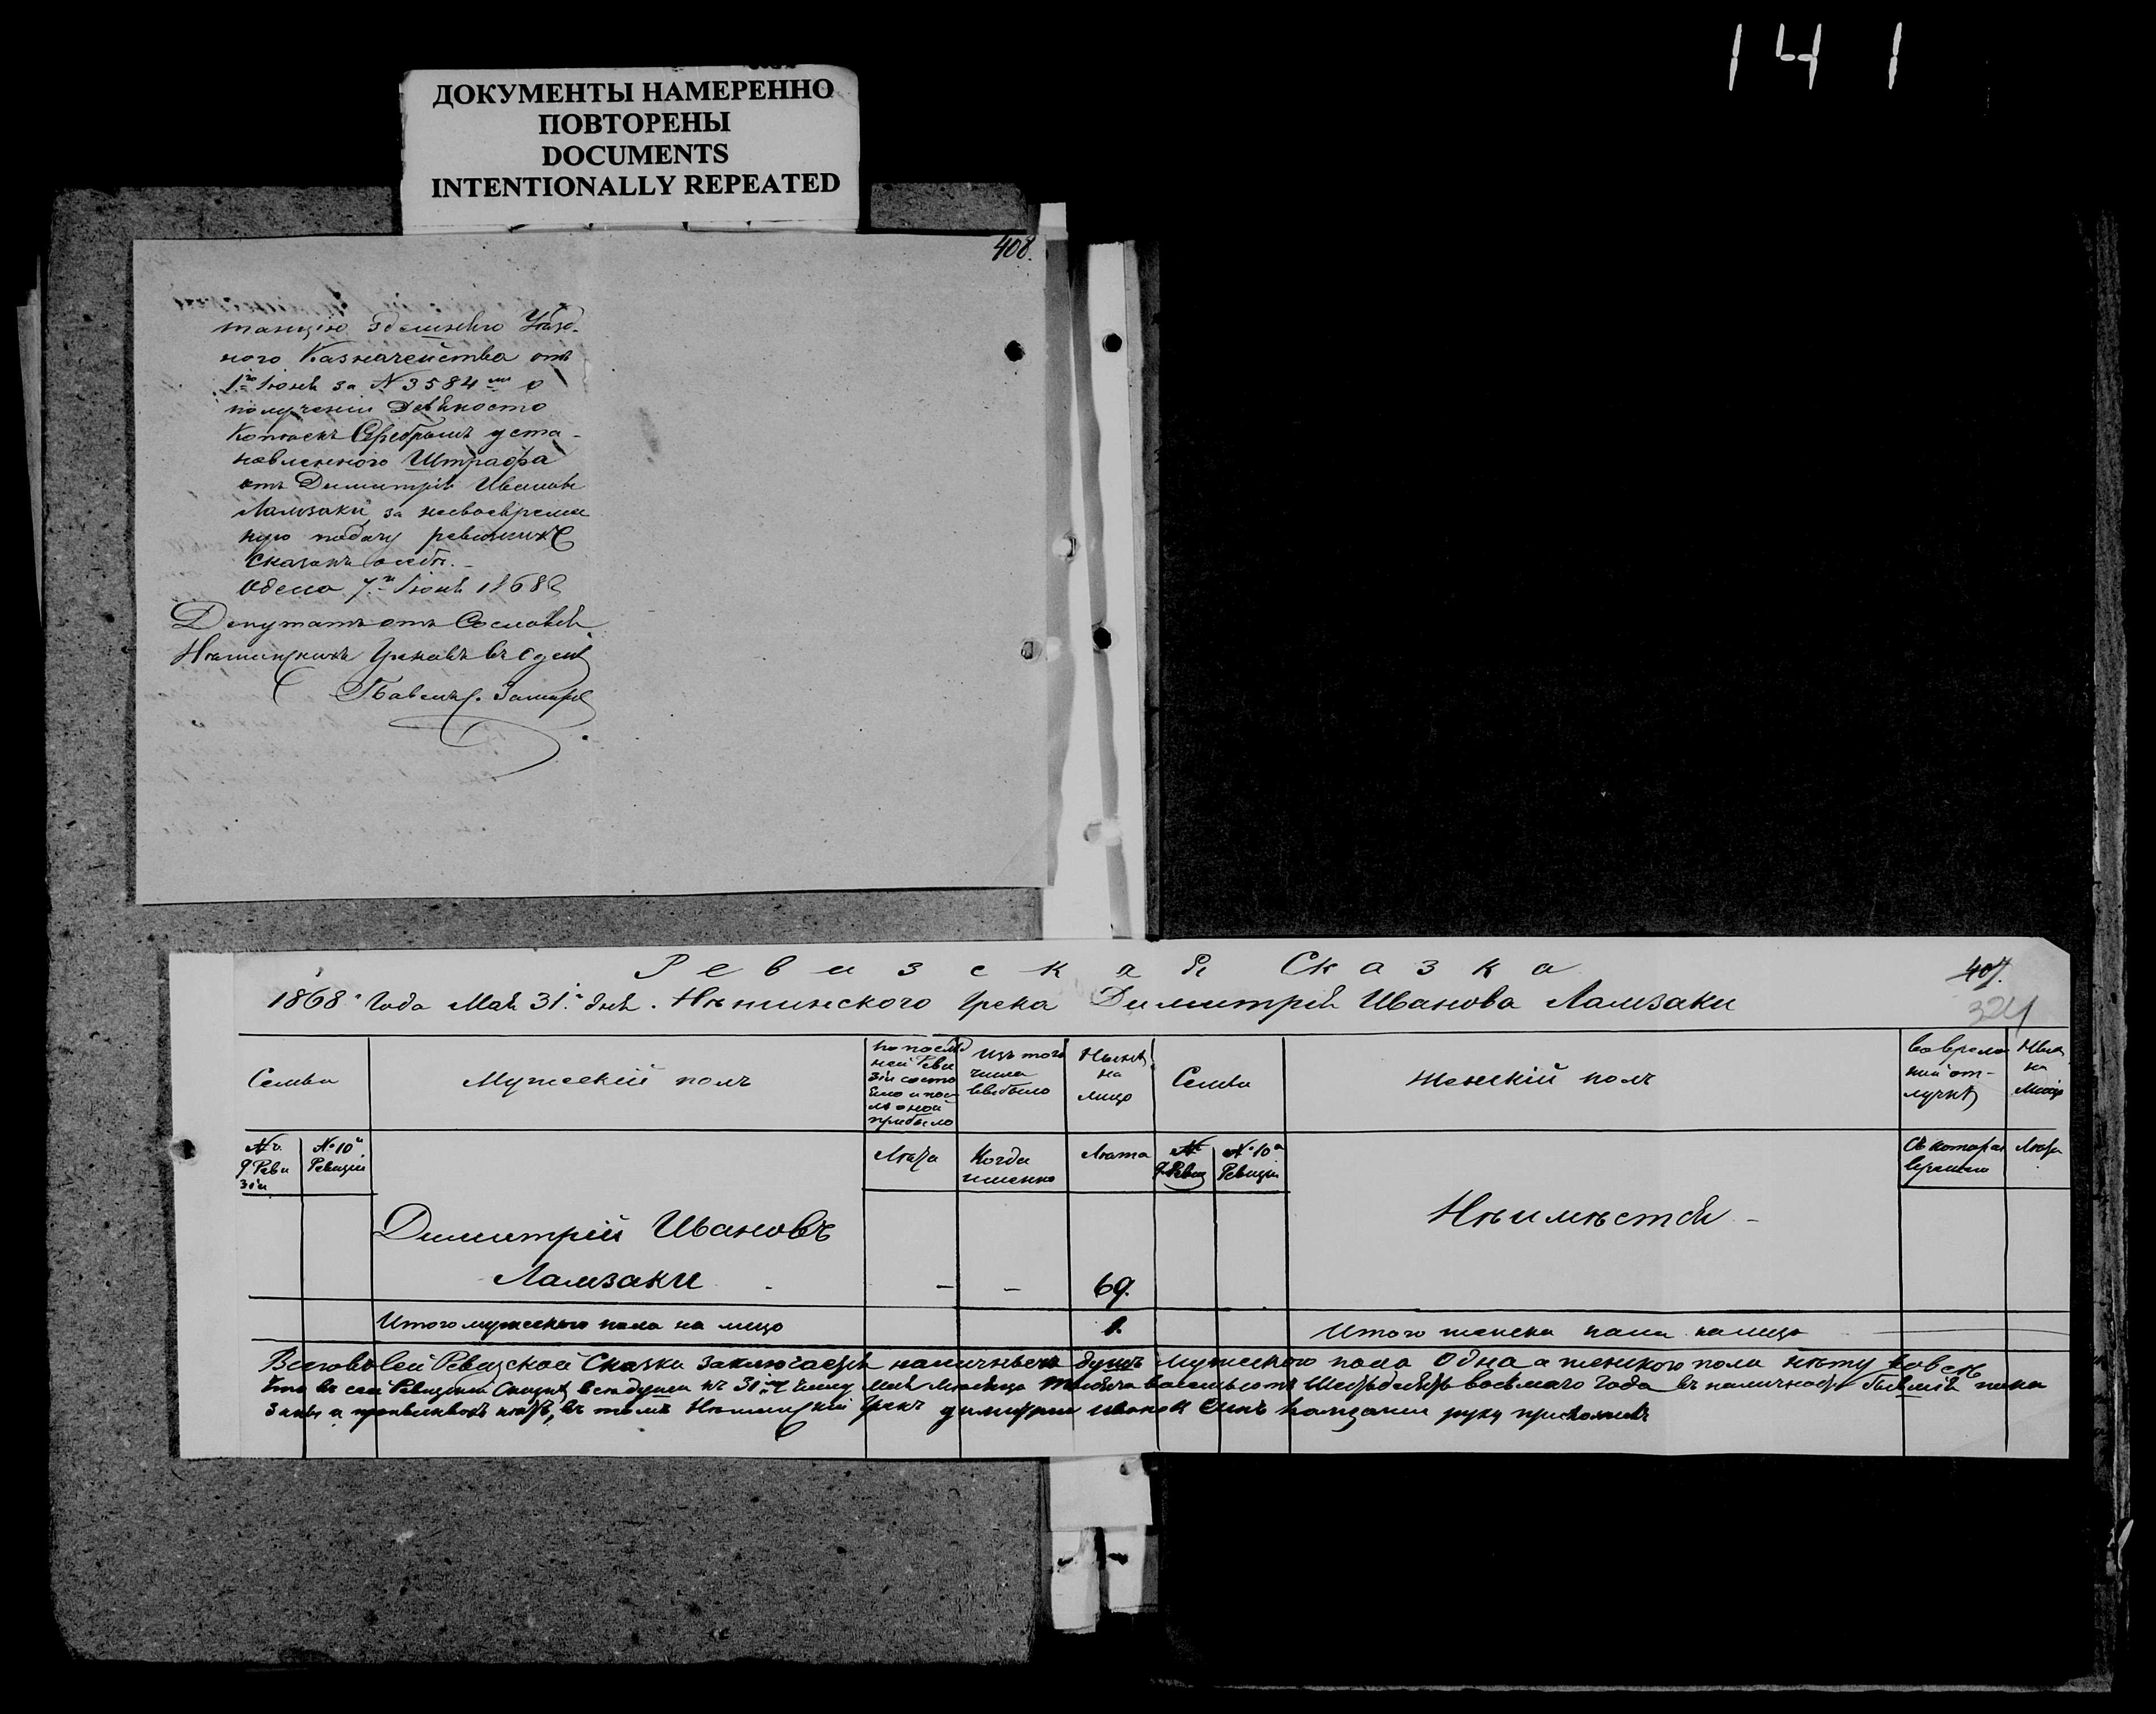 141
ДОКУМЕНТЫ НАМЕРЕННО
ПОВТОРЕНЫ
DOCUMENTS
INTENTIONALLY REPEATED
408.
танцію здешнѣго Уѣзд-
ного Казначейства отъ
1го Іюня за № 3584 о
полученіи Девяносто
Копѣекъ Серебромъ уста-
новленного Штрафа
отъ Димитрія Иванова
Ламзаки за несвоевремен
ную подачу
сказокъ
Одесса 7го Іюня 1868
Депутатъ отъ Сословія
Нѣжинскихъ Грековъ въ
Павелъ
Ревизская Сказка
407.
324
1868 Года Мая 31 дня. Нѣжинского Грека Димитрія Иванова Ламзаки
Семьи
Мужескій полъ
по послѣд
ней Реви
зіи состо
яло и пос
лѣ оной
прибыло
Изъ того
числа
выбыло
Нынѣ
на
лицо
Семьи
Женскій полъ
во времен
ной от-
лучкѣ
Нынѣ
на
лицо
№
9 Реви
зіи
№ 10й
Ревизіи
Лѣта
Когда
именно
Лѣта
№
9 Ревиз
№ 10й
Ревизіи
Съ котораго
времени
Лѣта
Димитрій Ивановъ
Ламзаки - - - 69.
Нѣимѣстся -
Итого мужеского пола на лицо 1.
Итого женска пола налицо
Всего въ сей Ревизской Сказки заключается наличныхъ душъ мужеского пола одна а женского пола нѣту вовсе
Что въ сей Ревизской къ 31 Мая Мѣсяца восемьсотъ восьмаго года въ
въ томъ Нѣжинскій Грекъ димитрии сынъ руку приложилъ